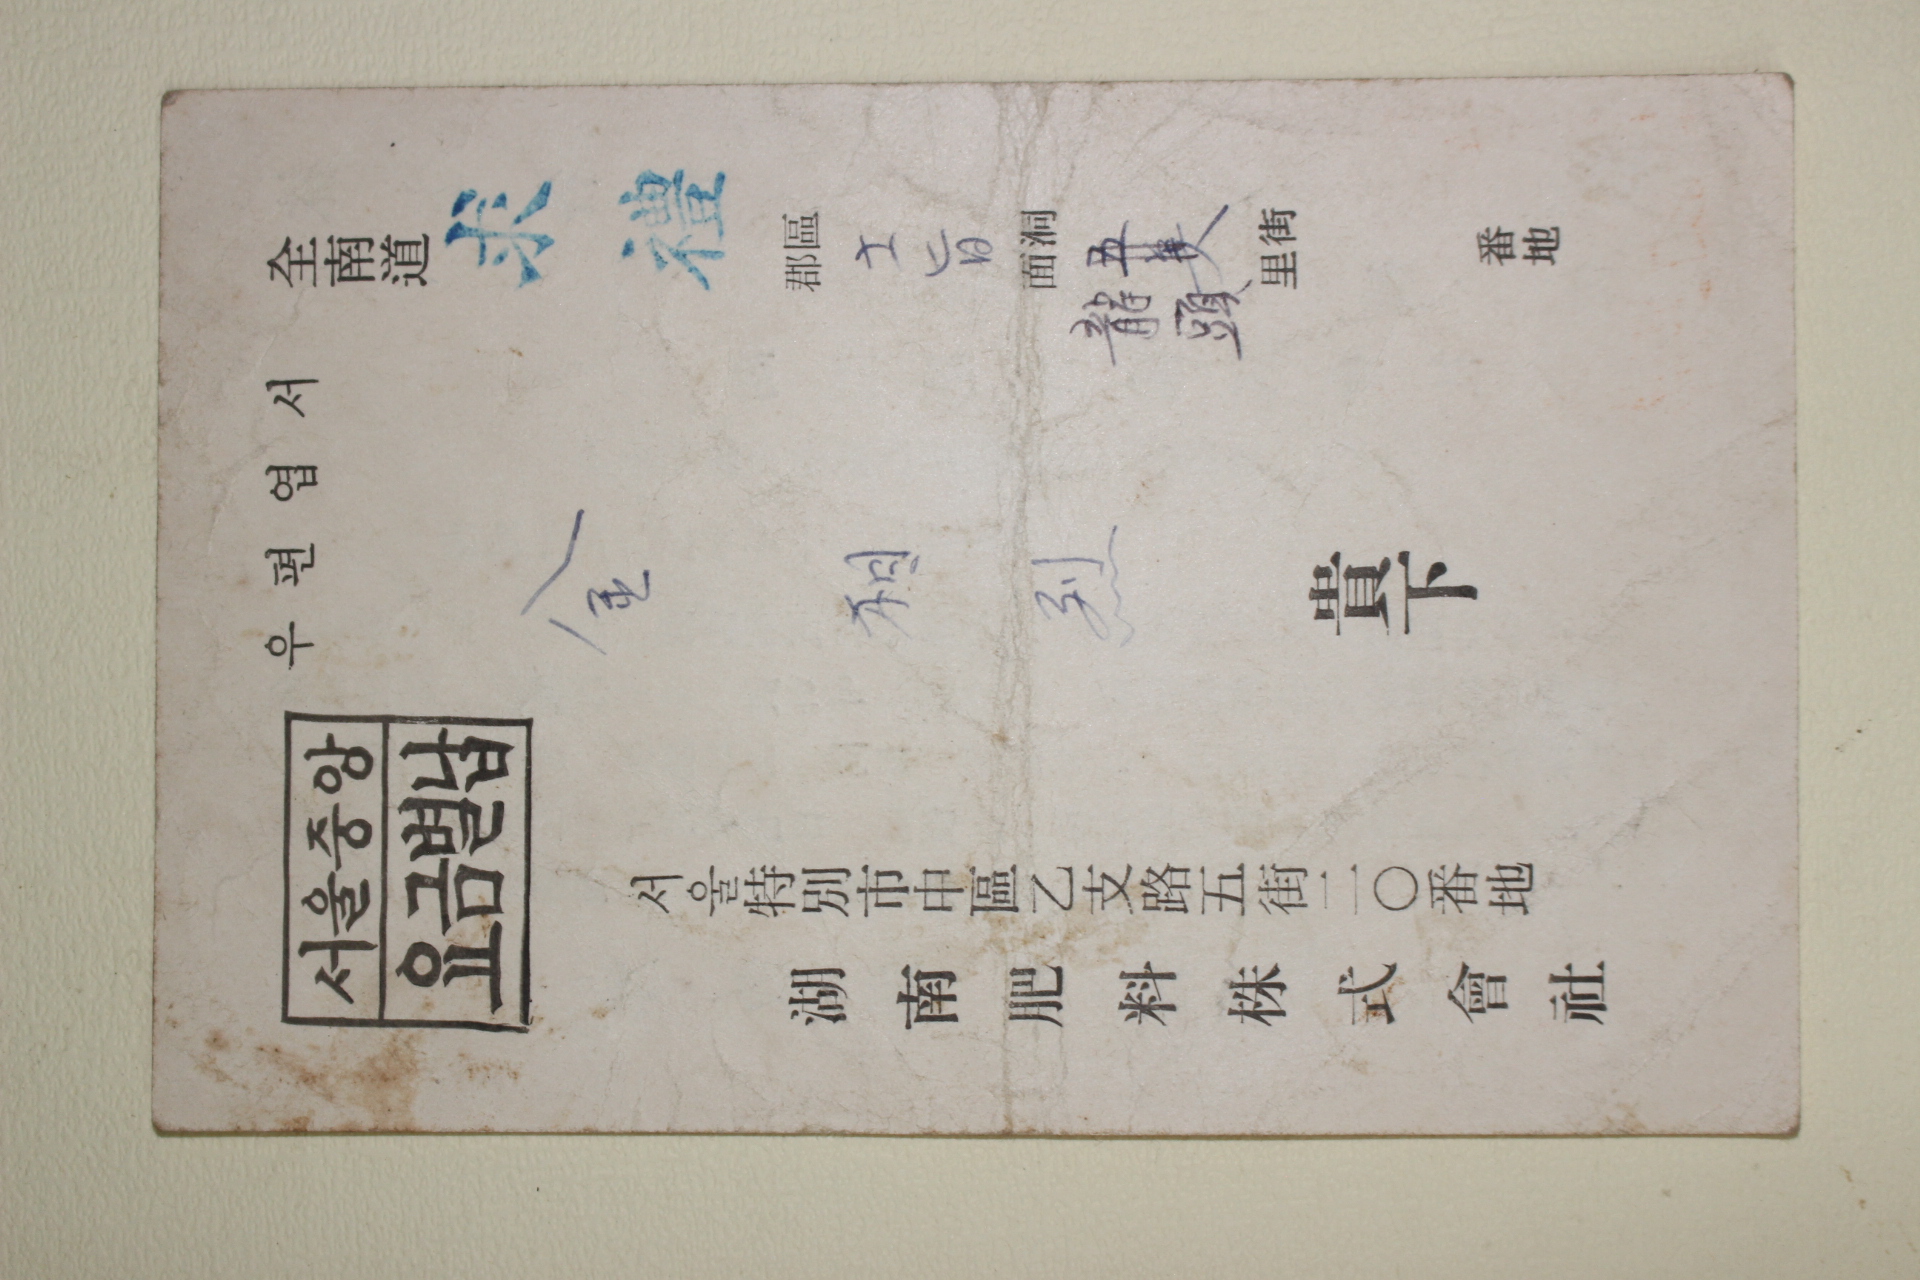 우편엽서
서울중앙
요금별납
全南道 求禮 郡區 土旨 面洞 龍頭 里街 番地
金相烈 貴下
서울特別市中區乙支路五街二〇番地
湖南肥料株式會社